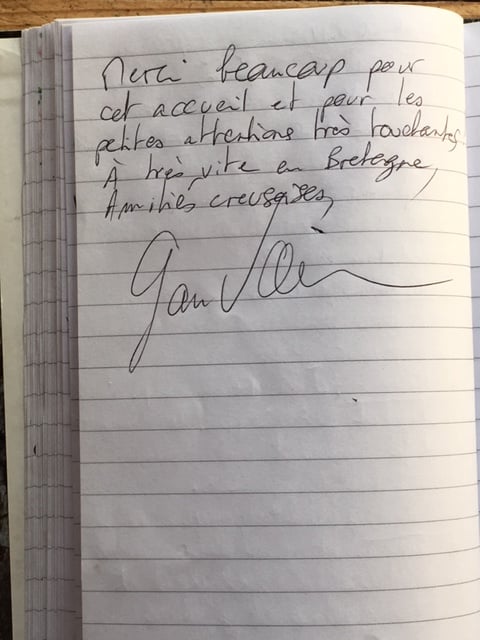 Merci beaucoup pour
cet accueil et pour les
petites attentions très touchantes.
À très vite en Bretagne,
Amitiés creusoises,
Gauvain